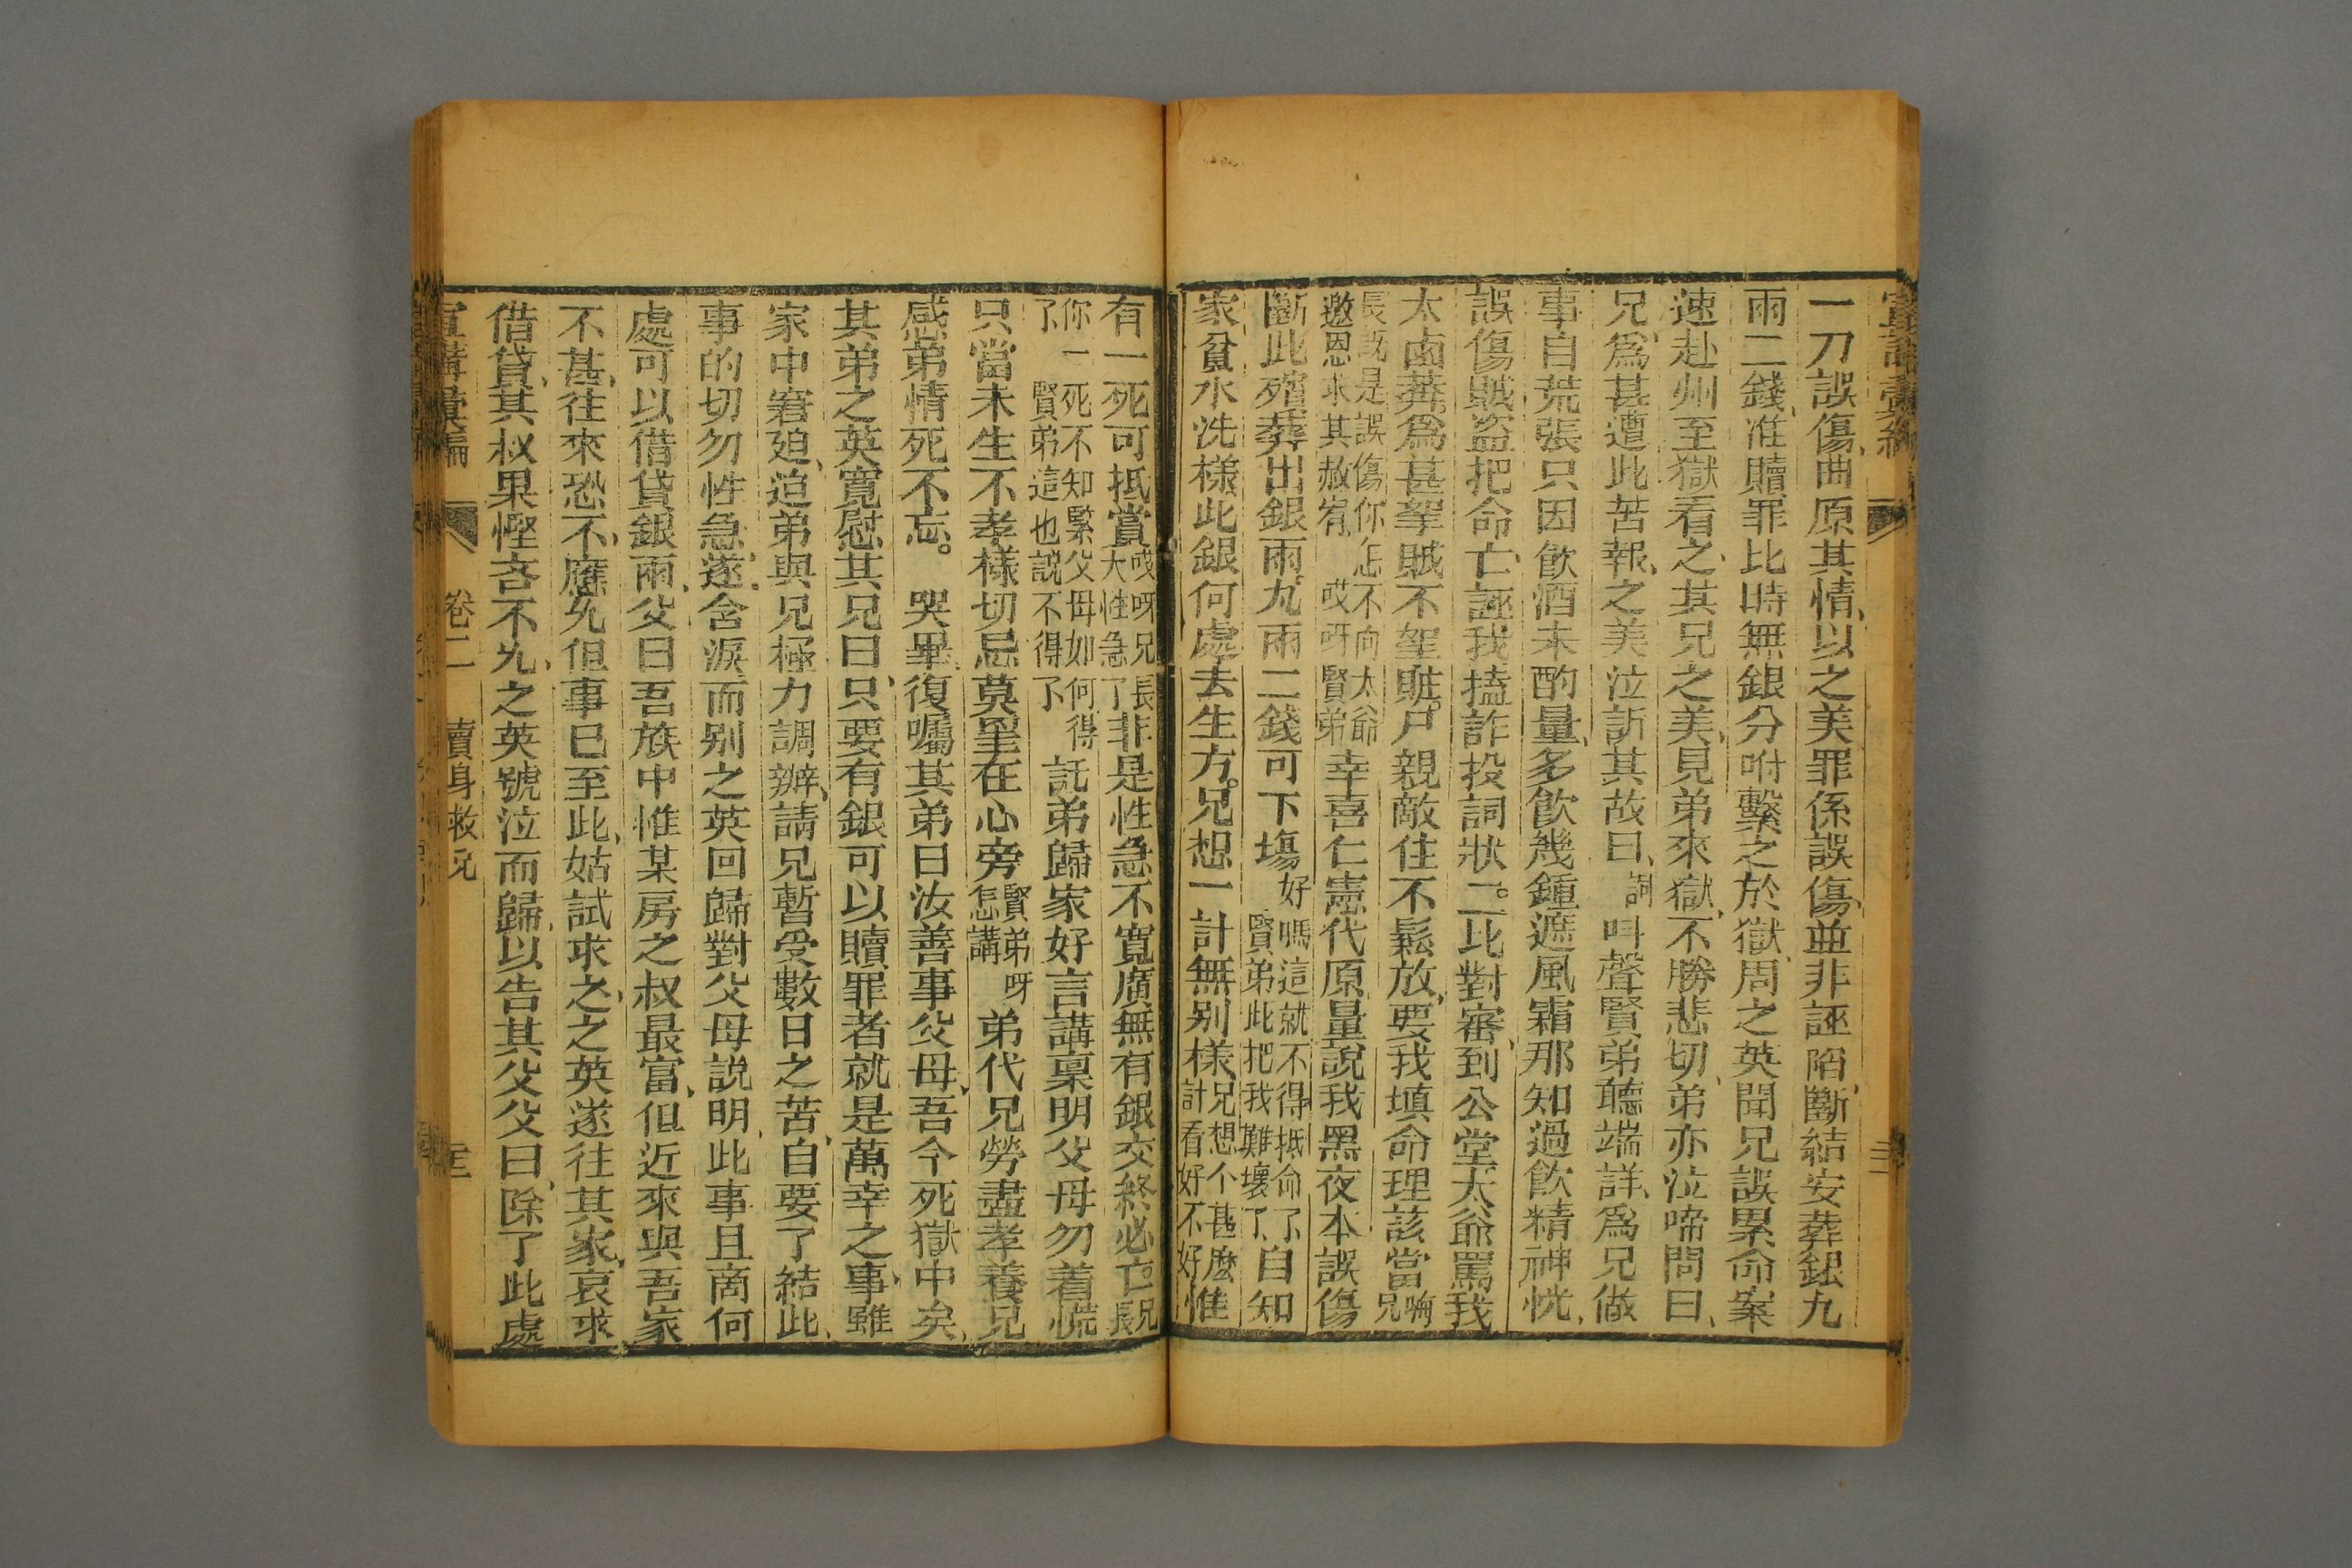 宣講彙編
一刀誤傷曲原其情以之美罪係誤傷並非誣陷斷結安葬銀九
兩二錢准贖罪比時無銀分咐繫之於獄周之英聞兄誤累命案
速赴州至獄看之其兄之美見弟來獄不勝悲切弟亦泣啼問曰
兄爲甚遭此苦報之美泣訴其故曰詞叫聲賢弟聽端詳爲兄做
事自荒張只因飲酒未酌量多飲幾鍾遮風霜那知過飲精神恍
誤傷賊盜把命亡誣我搕詐投詞狀二比對審到公堂太爺罵我
太鹵莽爲甚挐賊不挐賍尸親敵住不鬆放要我填命理該當啊兄
長既是誤傷你怎不向太爺邀恩求其赦宥哎呀賢弟幸喜仁憲代原量說我黑夜本誤傷
斷此殯葬出銀兩九兩二錢可下塲好嗎這就不得抵命了賢弟此把我難壞了自知
家貧水洗樣此銀何處去生方兄想一計無别樣兄想个甚麽計看好不好惟
有一死可抵賞哎呀兄長大性急了非是性急不寬廣無有銀交終必亡兄長
你一死不知緊父母如何得了賢弟這也說不得了託弟歸家好言講稟明父母勿着慌
只當未生不孝樣切忌莫罣在心旁賢弟呀怎講弟代兄勞盡孝養兄
感弟情死不忘。哭畢復囑其弟曰汝善事父母吾今死獄中矣
其弟之英寬慰其兄曰只要有銀可以贖罪者就是萬幸之事雖
家中窘廹迫弟與兄極力調辦請兄暫受數日之苦自要了結此
事的切勿性急遂含淚而别之英回歸對父母說明此事且商何
處可以借貸銀兩父曰吾族中惟某房之叔最富但近來與吾家
不甚往來恐不應允但事已至此姑試求之之英遂往其家哀求
借貸其叔果慳吝不允之英號泣而歸以告其父父曰除了此處
宣講彙編 卷二 賣身救兄